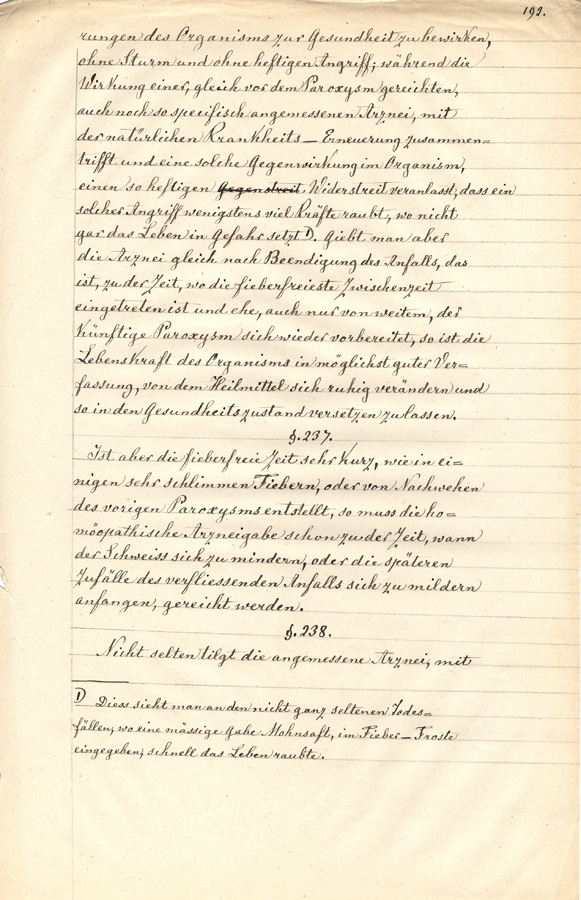 192.
rungen des Organisms zur Gesundheit zu bewirken,
ohne Sturm und ohne heftigen Angriff; während die
Wirkung einer, gleich vor dem Paroxysm gereichten,
auch noch so specifisch angemessenen Arznei, mit
der natürlichen Krankheits-Erneuerung zusammen=
trifft und eine solche Gegenwirkung im Organism,
einen so heftigen Gegenstreit. Widerstreit veranlasst, dass ein
solcher Angriff wenigstens viel Kräfte raubt, wo nicht
gar das Leben in Gefahr setzt 1). Giebt man aber
die Arznei gleich nach Beendigung des Anfalls, das
ist, zu der Zeit, wo die fieberfreieste Zwischenzeit
eingetreten ist und ehe, auch nur von weitem, der
künftige Paroxysm sich wieder vorbereitet, so ist die
Lebenskraft des Organisms in möglichst guter Ver=
fassung, von dem Heilmittel sich ruhig verändern und
so in den Gesundheitszustand versetzen zu lassen.
§. 237.
Ist aber die fieberfreie Zeit sehr kurz, wie in ei=
nigen sehr schlimmen Fiebern, oder von Nachwehen
des vorigen Paroxysms entstellt, so muss die ho=
möopathische Arzneigabe schon zu der Zeit, wann
der Schweiss sich zu mindern, oder die späteren
Zufälle des verfliessenden Anfalls sich zu mildern
anfangen, gereicht werden.
§. 238.
Nicht selten tilgt die angemessene Arznei, mit
1) Diess sieht man an den nicht ganz seltenen Todes=
fällen, wo eine mässige Gabe Mohnsaft, im Fieber-Froste
eingegeben, schnell das Leben raubte.